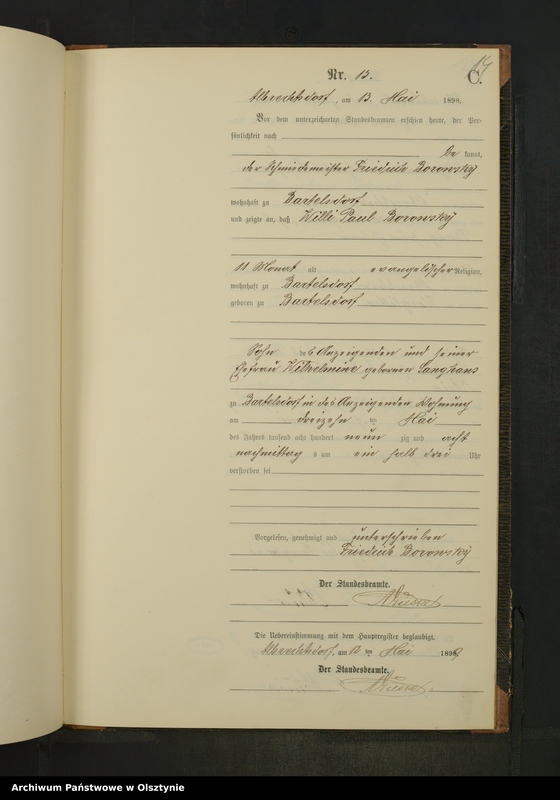 14
Nr. 13.
C.
Albrechtsdorf, am 13. Mai 1898.
Vor dem unterzeichneten Standesbeamten erschien heute, der Per-
sönlichkeit nach
be kannt,
der Schmiedemeister Friedrich Borowsky
wohnhaft zu Bartelsdorf
und zeigte an, daß Willi Paul Borowsky
11 Monat alt evangelischer Religion,
wohnhaft zu Bartelsdorf
geboren zu Bartelsdorf
Sohn des Anzeigenden und seiner
Ehefrau Wilhelmine geborenen Langhans
zu Bartelsdorf in des Anzeigenden Wohnung
am dreizehn ten Mai
des Jahres tausend acht hundert neun zig und acht
nachmittag s um ein halb drei Uhr
verstorben sei
Vorgelesen, genehmigt und unterschrieben
Friedrich Borowsky
Der Standesbeamte.
Die Uebereinstimmung mit dem Hauptregister beglaubigt.
Albrechtsdorf, am ten Mai 189
Der Standesbeamte.
Archiwum Państwowe w Olsztynie